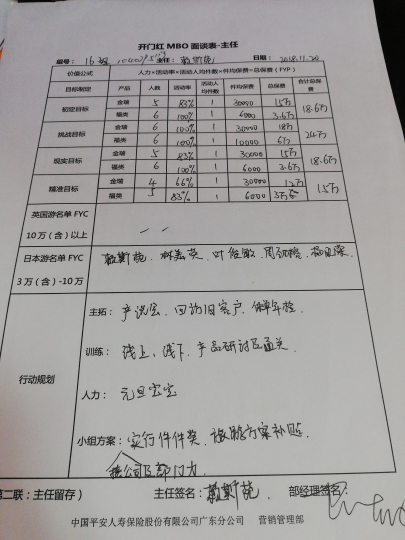 开门红 MBO 面谈表-主任
编号: 16 主任: 日期: 2018.11.20
价值公式 人力×活动率×活动人均件数×件均保费=总保费(FYP)
目标制定 产品 人数 活动率 活动人均件数 件均保费 总保费 合计总保费
初定目标 金瑞 5 83% 1 30000 15万 18.6万
福类 6 100% 1 6000 3.6万
挑战目标 金瑞 6 100% 1 30000 18万 24万
福类 6 100% 1 10000 6万
现实目标 金瑞 5 83% 1 30000 15万 18.6万
福类 6 100% 1 6000 3.6万
精准目标 金瑞 4 66% 1 30000 12万 15万
福类 5 83% 1 6000 3万
英国游名单 FYC
10 万(含)以上
日本游名单 FYC
3 万(含)-10万
行动规划
主拓: 产说会、回访旧客户、保单年检
训练: 线上、线下、产品研讨及通关
人力: 元旦宝宝
小组方案: 实行件件奖、旅游方案补贴
公司及部门方
第二联:主任留存) 主任签名: 部经理签名:
中国平安人寿保险股份有限公司广东分公司 营销管理部